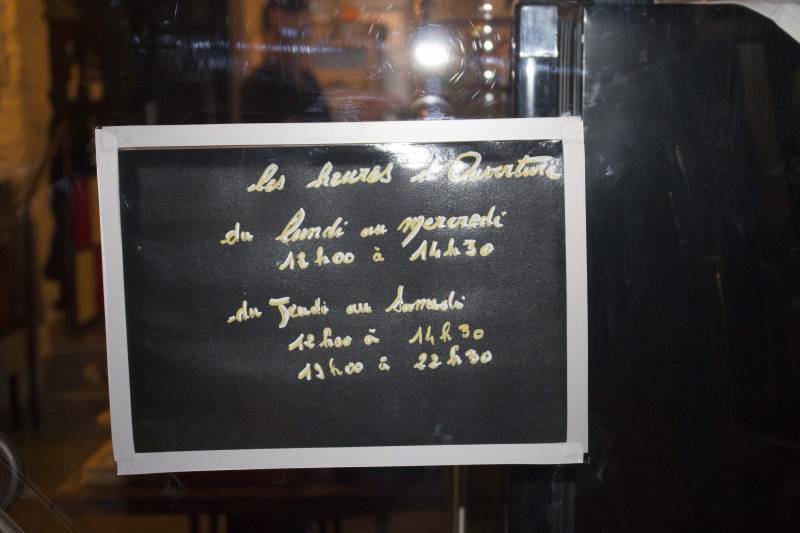 les heures d'Ouverture
du lundi au mercredi
12h00 à 14h30
du Jeudi au Samedi
12h00 à 14h30
19h00 à 22h30